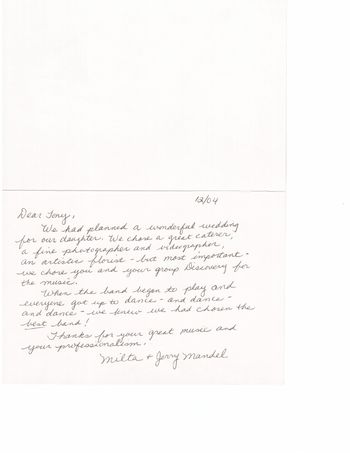 12/04
Dear Tony,
We had planned a wonderful wedding
for our daughter. We chose a great caterer,
a fine photographer and videographer,
an artistic florist - but most important -
we chose you and your group Discovery for
the music.
When the band began to play and
everyone got up to dance - and dance -
and dance - we knew we had chosen the
best band!
Thanks for your great music and
your professionalism.
Milta + Jerry Mandel